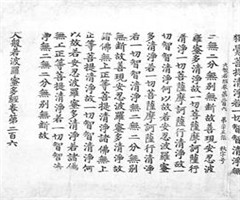 二無二分無別無斷故善現安忍波
羅蜜多清淨故一切菩薩摩訶薩行
清淨一切菩薩摩訶薩行清淨故一
切智智清淨何以故若安忍波羅蜜
多清淨若一切菩薩摩訶薩行清淨
若一切智智清淨無二無二分無別
無斷故善現安忍波羅蜜多清淨故
諸佛無上正等菩提清淨諸佛無上
正等菩提清淨故一切智智清淨何
以故若安忍波羅蜜多清淨若諸佛
無上正等菩提清淨若一切智智清
淨無二無二分無別無斷故
大般若波羅蜜多經卷第二百六